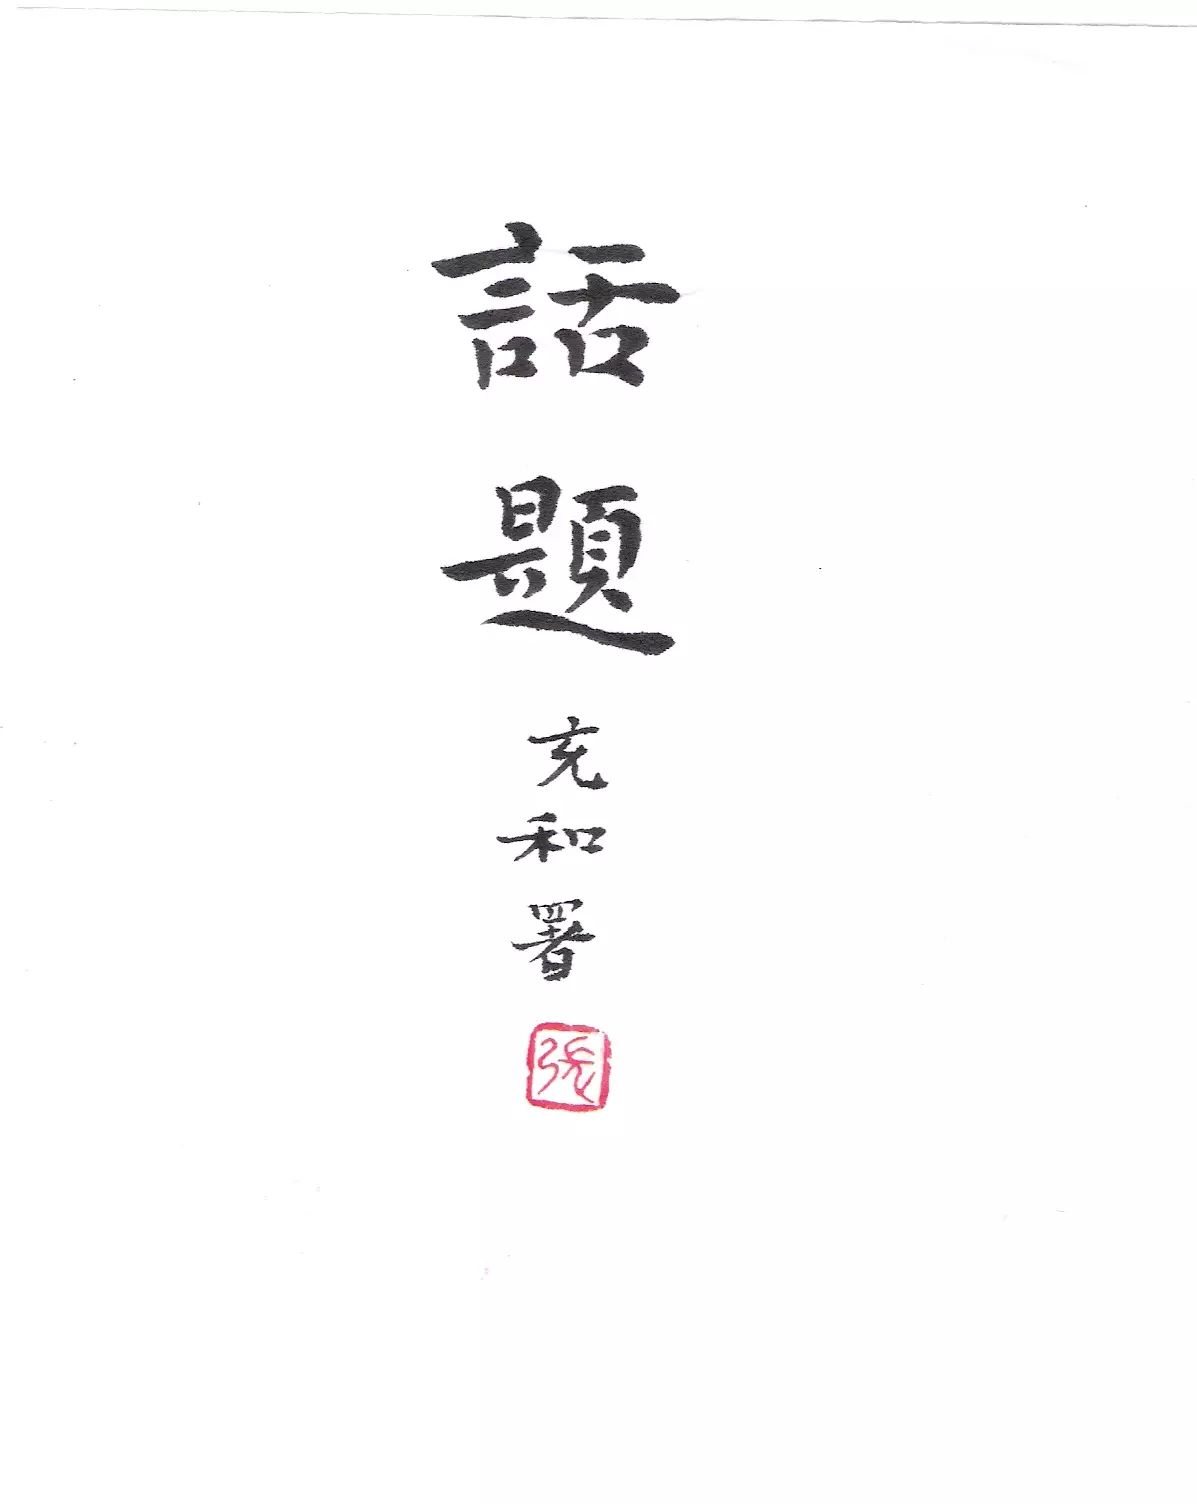 話題
充和署
張